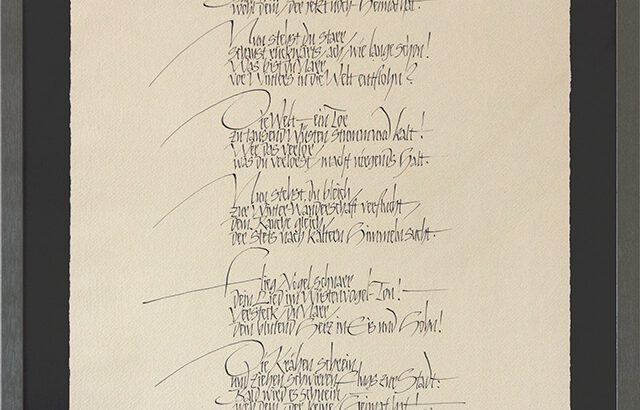 wohl dem, der jetzt noch – Heimat hat.
Nun stehst du starr
schaust rückwärts, ach! wie lange schon!
Was bist du Narr
vor Winters in die Welt entflohn?
Die Welt – ein Tor
zu tausend Wüsten stumm und kalt!
Wer das verlor
was du verlorst, macht nirgends Halt.
Nun stehst du bleich
zur Winter-Wanderschaft verflucht
dem Rauche gleich
der stets nach kältern Himmeln sucht.
Flieg Vogel, schnarr
dein Lied im Wüstenvogel-Ton! –
Versteck, du Narr
dein blutend Herz in Eis und Hohn!
Die Krähen schrein
und ziehen schwirren Flugs zur Stadt:
Bald wird es schnein
weh dem, der keine Heimat hat!